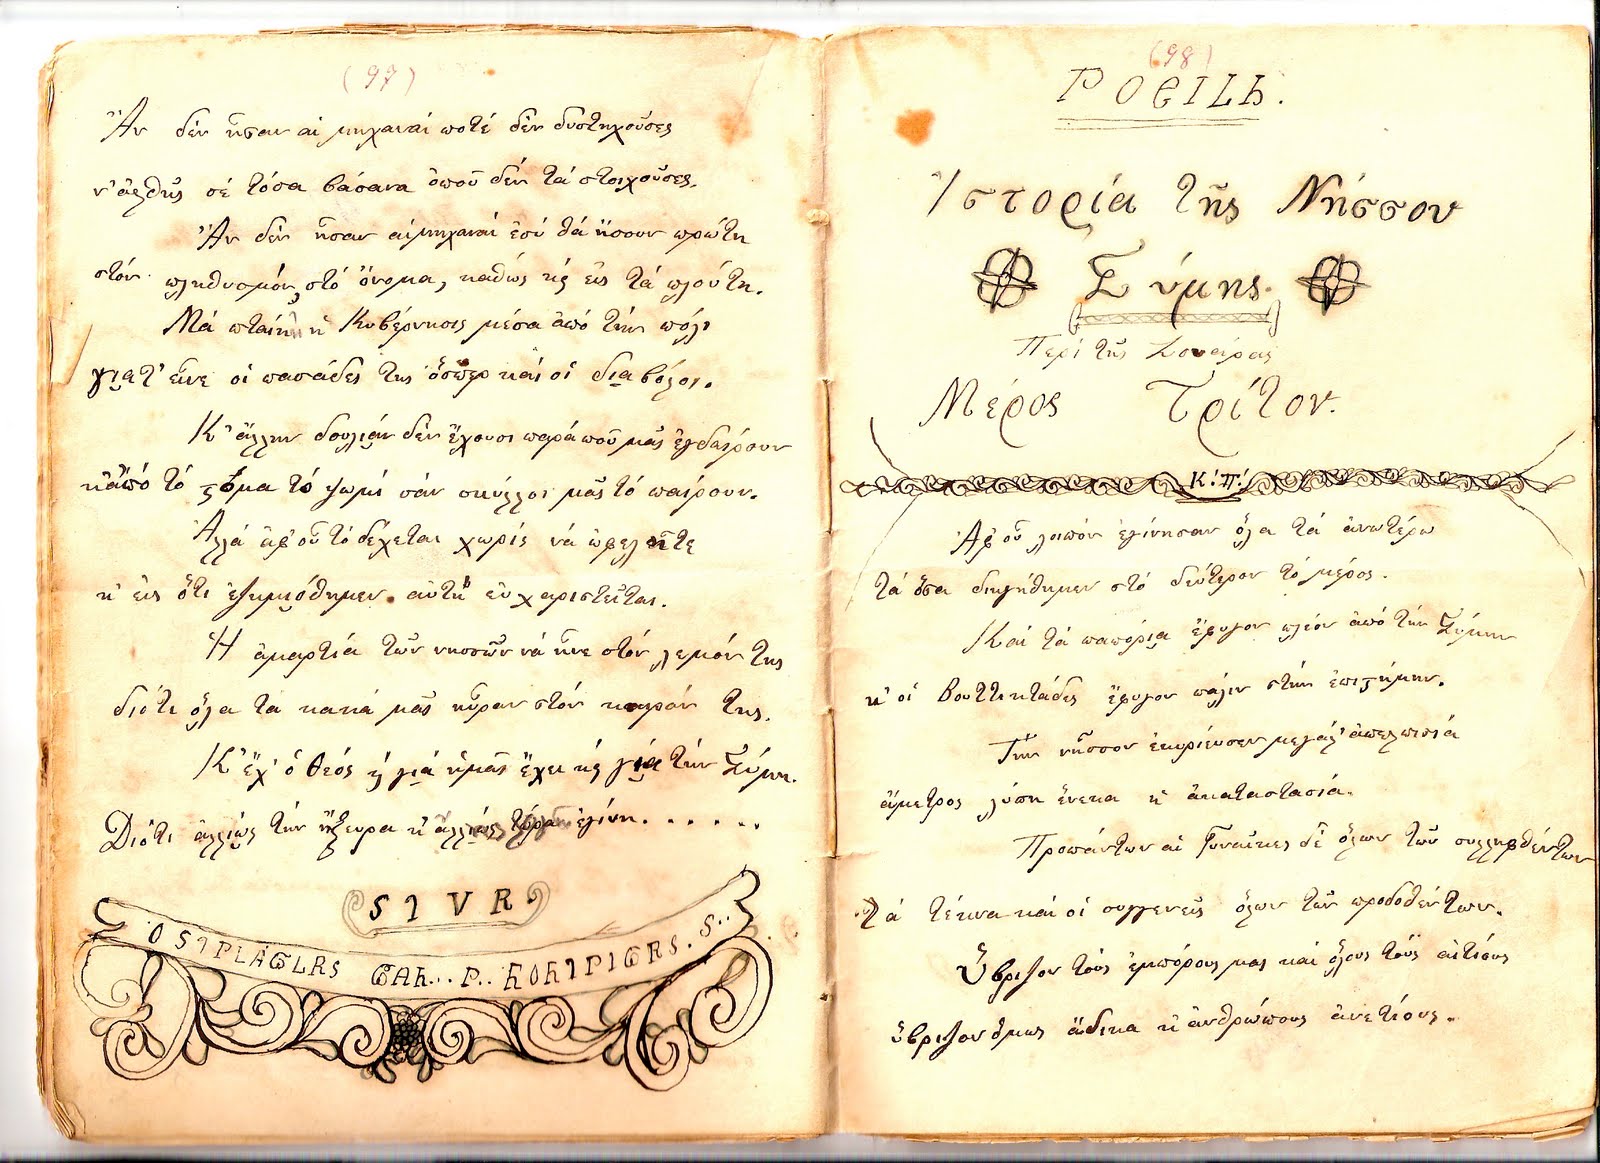 (97)
Ἂν δέν ἦσαν αἱ μηχαναί ποτέ δὲν δυστηχοῦσες
ν' ἀλθῇς σέ τόσα βάσανα ὁποῦ δέν τά στοιχοῦσες.
Ἂν δέν ἦσαν αἱ μηχαναί ἐσύ θά ἤσουν πρώτη
στόν πληθυσμόν, στό ὄνομα, καθώς κ εἰς τά πλούτη.
Μά πταίει ἡ Κυβέρνησις μέσα ἀπό τήν πόλι
γιατ' εἶνε οἱ πασάδες της ὅσπερ καί οἱ διαβόλοι.
Κ' ἄλλην δουλιάν δέν ἔχουσι παρά ποῦ μᾶς ἐγδαίρουν
κ' ἀπό τό στόμα τό ψωμί σάν σκύλλοι μᾶς τό παίρουν.
Ἀλλά ἀφ' οὗ τό δέχεται χωρίς νά ὠφελῆτε
κ' εἰς ὅτι ἐζημιόθημεν αὐτή εὐχαριστεῖται.
Ἡ ἁμαρτία τῶν νησσῶν νά ἦνε στόν λεμόν της
διότι ὅλα τά κακά μᾶς ηὗραν στόν καιρόν της.
Κ' ἔχ' ὁ Θεός κ γιά ἡμᾶς ἔχει κ γιά τήν Σύμη.
Διότι ἀλλιῶς τήν ἤξευρα κ' ἀλλιῶς τώρα ἐγίνη......
(98)
Ἱστορία τῆς Νήσσου
Σύμης.
Περί τῆς Σουείρας
Μέρος Τρίτον.
Κ. Π.
Ἀφ οὗ λοιπόν ἐγίνησαν ὅλα τά ἀνωτέρω
τά ὅσα διηγήθημεν στό δεύτερον τό μέρος.
Καί τά παπόρια ἔφυγον πλέον ἀπό τήν Σύμην
κ' οἱ Βουττηκτάδες ἔφυγον πάλιν στήν ἐπιστήμην.
Τήν νῆσσον ἐκυρίευσεν μεγάλ' ἀπελπισιά
ἄμετρος λύπη ἕνεκα κ ἀκαταστασιά.
Προπάντων αἱ Γυναῖκες δέ ὅλων τῶν συλληφθέντων
τά τέκνα καί οἱ συγγενεῖς ὅλων τῶν προδοθέντων.
Ὕβριζον τούς ἐμπόρους μας καί ὅλους τούς αἰτίους
ὕβριζον ὅμως ἄδικα κ ἀνθρώπους ἀνετίους.